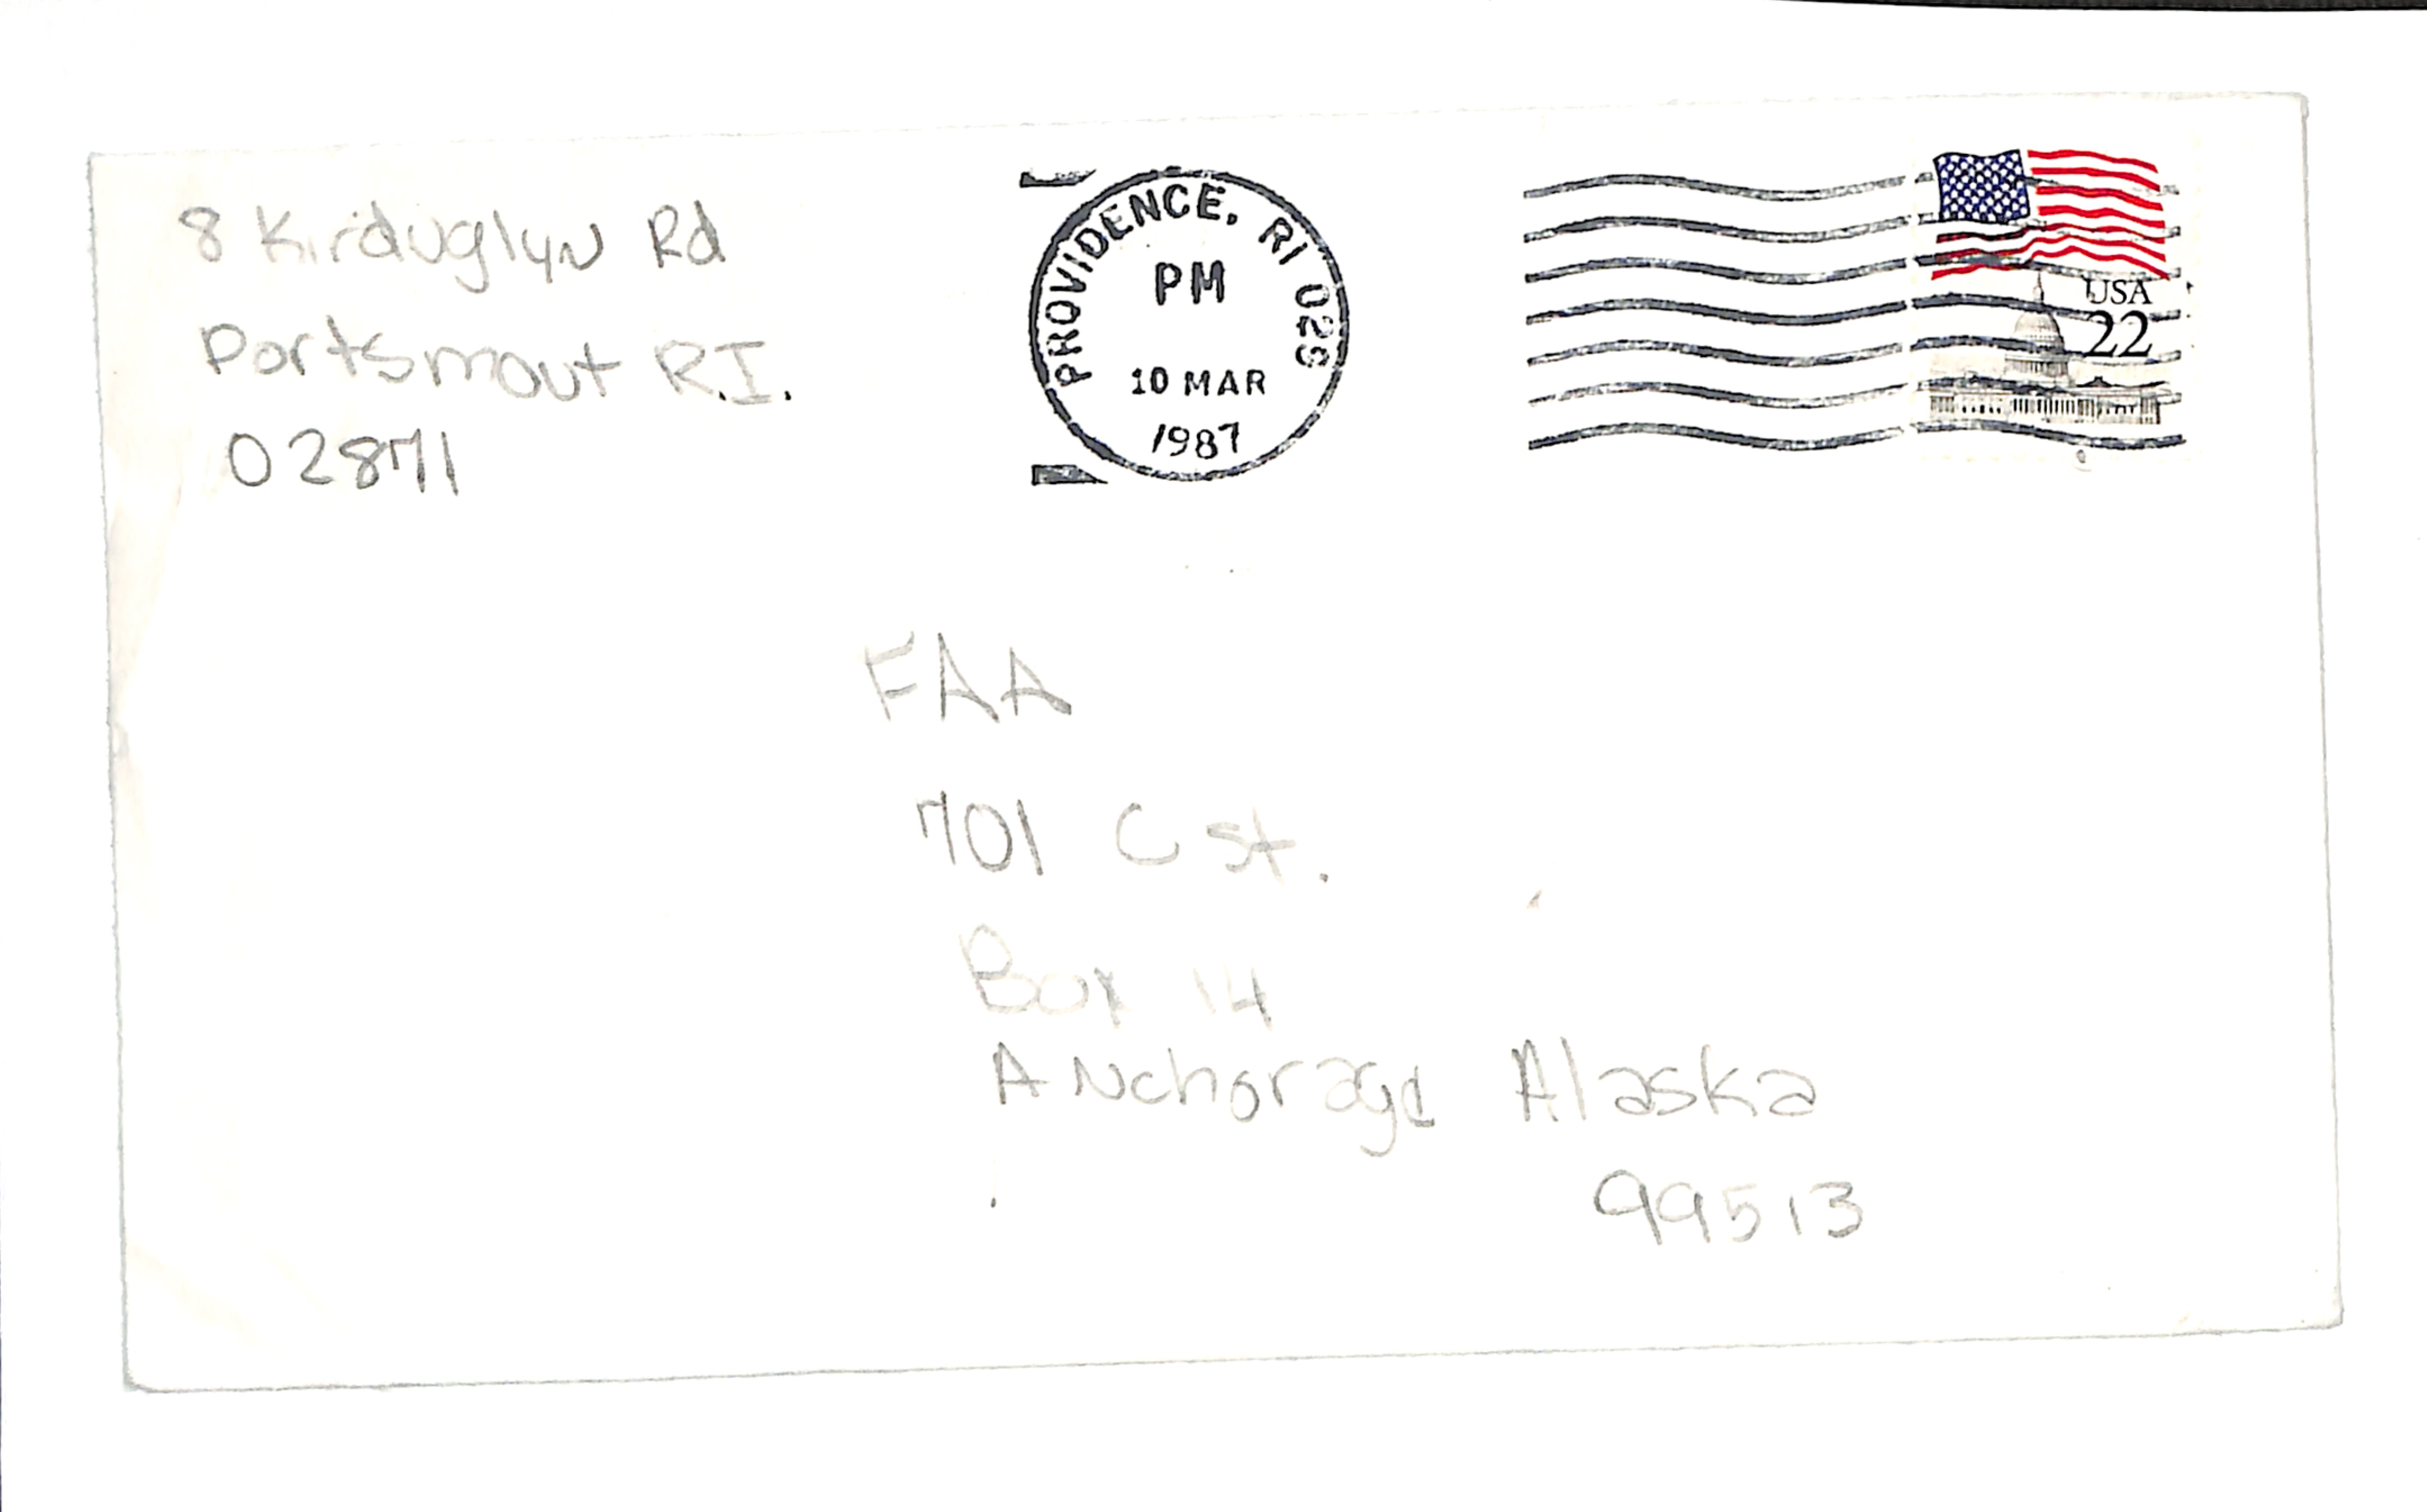 8 Kirduglyn Rd
Portsmout R.I.
02871
PROVIDENCE, RI 028
PM
10 MAR
1987
USA
22
FAA
701 C st.
Box 14
Anchorage Alaska
99513